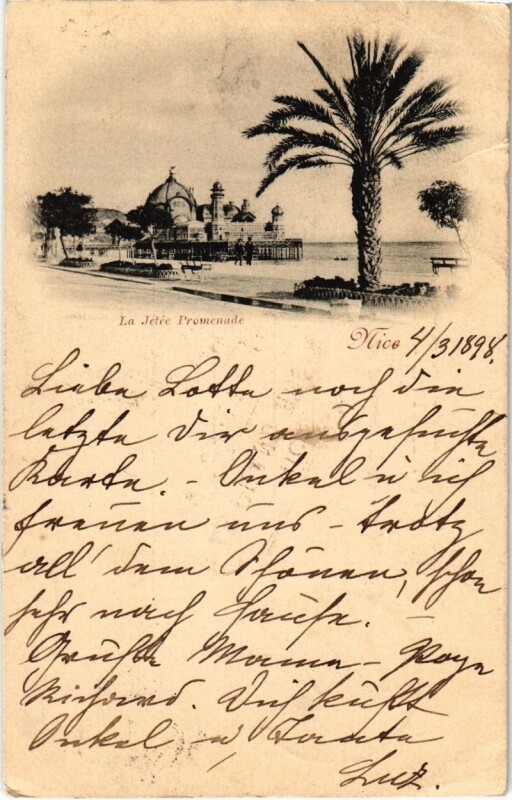 La Jetée Promenade
Nice 4/3 1898.
Liebe Lotte noch die
letzte Dir ausgesuchte
Karte. - Onkel u ich
freuen uns - trotz
all' dem Schönen, schon
sehr nach Hause. -
Grüße Mama - Papa
Richard. Dich küßt
Onkel u, Tante
Luz.